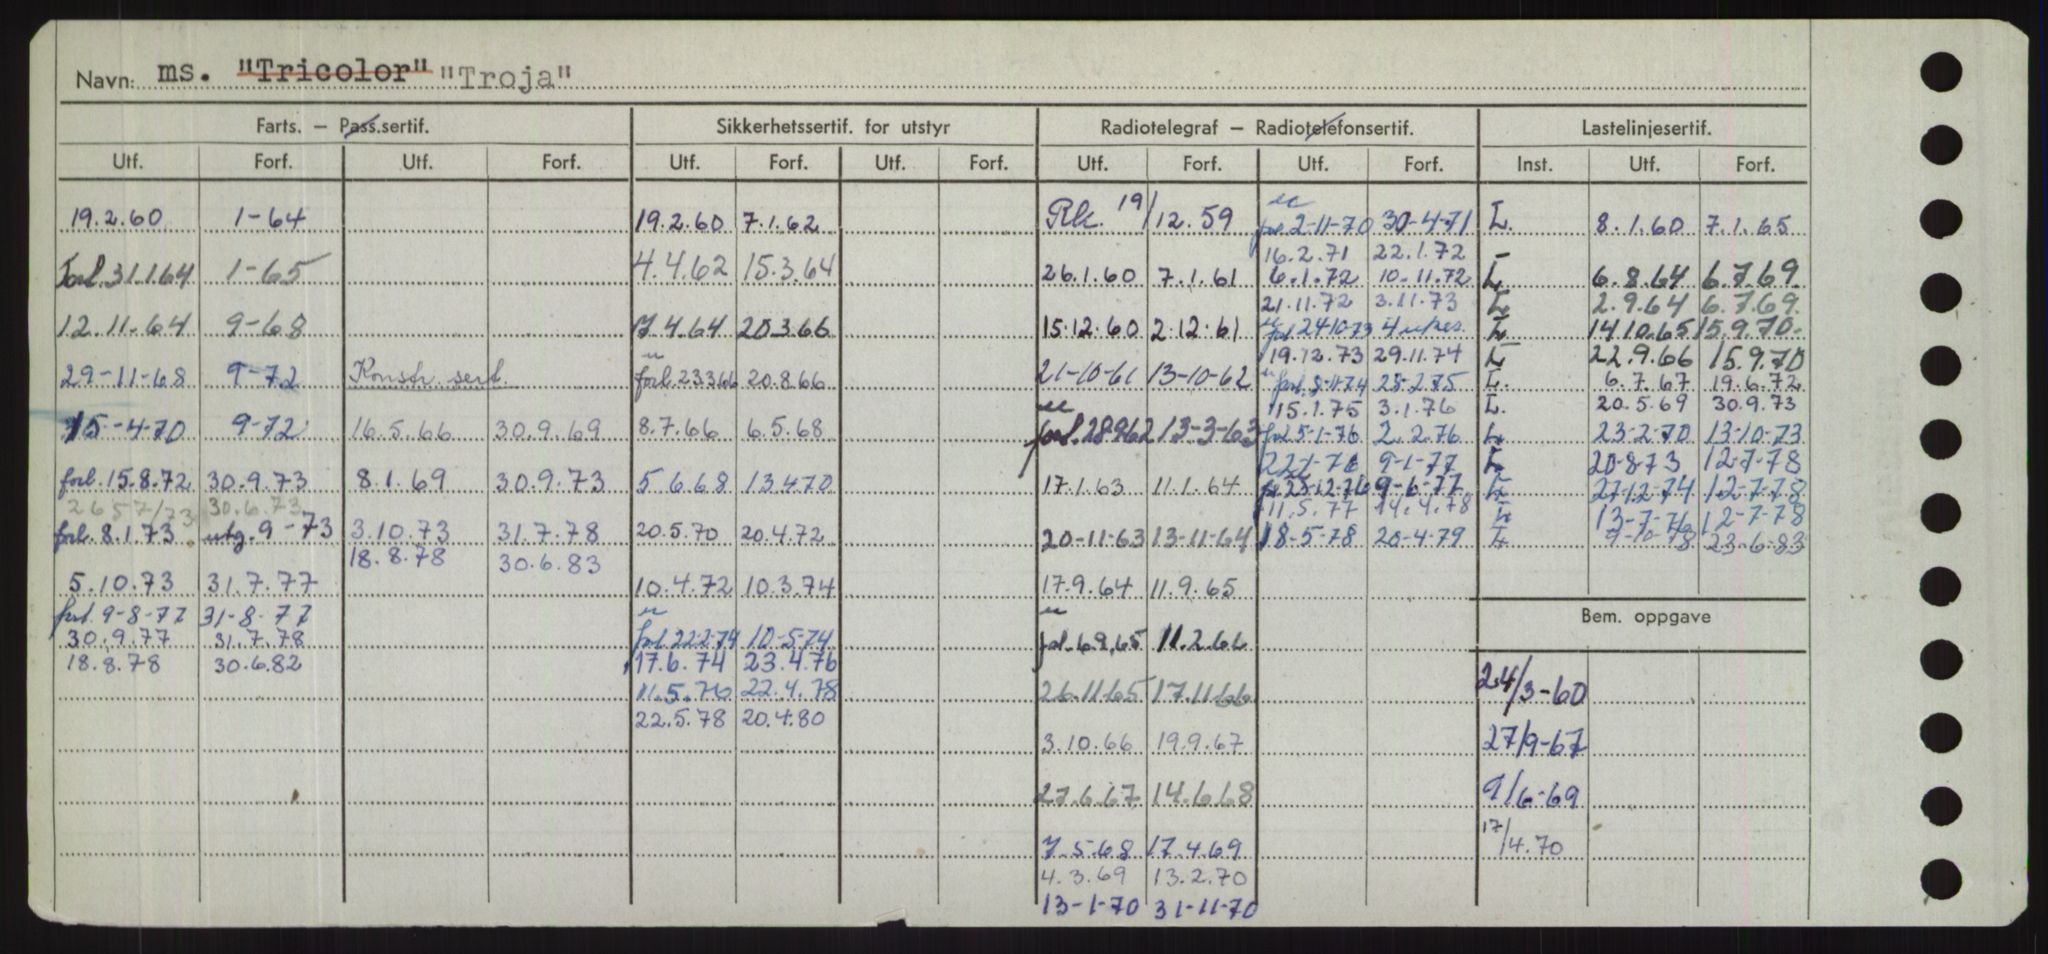 Navn: ms. "Tricolor" "Troja"
Farts. — Pass.sertif. Sikkerhetssertif. for utstyr Radiotelegraf — Radiotelefonsertif. Lastelinjesertif.
Utf. Forf. Utf. Forf. Utf. Forf. Utf. Forf. Utf. Forf. Utf. Forf. Inst. Utf. Forf.
19.2.60 1-64 19.2.60 7.1.62 Rk. 19/12.59 forl. 2-11-70 30-4-71 L. 8.1.60 7.1.65
16.2.71 22.1.72
Forl. 31.1.64 1-65 4.4.62 15.3.64 26.1.60 7.1.61 6.1.72 10.11.72 L 6.8.64 6.7.69.
21.11.72 3.11.73 L 2.9.64 6.7.69.
12.11.64 9-68 7.4.64 20.3.66 15.12.60 2.12.61 forl. 24.10.73 4 ukes. L 14.10.65 15.9.70.
19.12.73 29.11.74 L 22.9.66 15.9.70
29-11-68 9-72 Konstr. sert. forl. 23.3.66 20.8.66 21-10-61 13-10-62 forl. 8-11-74 28-2-75 L. 6.7.67 19.6.72
15.1.75 3.1.76 L. 20.5.69 30.9.73
15-4-70 9-72 16.5.66 30.9.69 8.7.66 6.5.68 forl. 28.9.62 13-3-63 forl. 5-1-76 2.2.76 L 23-2-70 13-10-73
22-1-76 9-1-77 L 20-8-73 12-7-78
forl. 15.8.72 30.9.73 8.1.69 30.9.73 5.6.68 13.4.70 17.1.63 11.1.64 23-12-76 9-6-77 L 27-12-74 12-7-78
30.6.73 11.5.77 14.4.78 L 13-7-76 12-7-78
forl. 8.1.73 utg. 9-73 3.10.73 31.7.78 20.5.70 20.4.72 20-11-63 13-11-64 18-5-78 20-4-79 L 9-10-78 23-6-83
18.8.78 30.6.83
5.10.73 31.7.77 10.4.72 10.3.74 17.9.64 11.9.65
forl. 9-8-77 31-8-77 Bem. oppgave
30.9.77 31.7.78 forl. 22.2.74 10-5-74 forl. 6.9.65 11.2.66
18.8.78 30.6.82 17.6.74 23.4.76
11.5.76 22.4.78 26.11.65 17.11.66 24/3-60
22.5.78 20.4.80
3.10.66 19.9.67 27/9-67
27.6.67 14.6.68 9/6-69
7.5.68 17.4.69 17/4.70
4.3.69 13.2.70
13-1-70 31-11-70